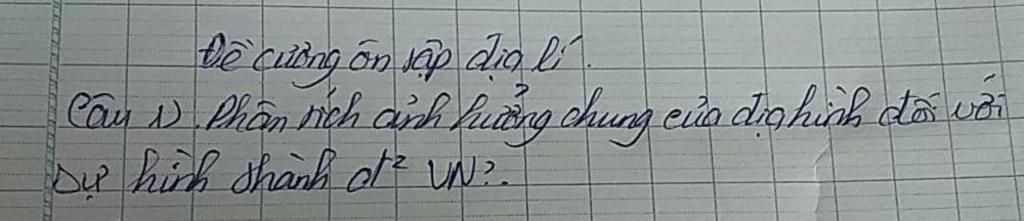 Đề cương ôn tập địa lí.
Câu 1). Phân tích ảnh hưởng chung của địa hình đối với
sự hình thành đ² VN?.